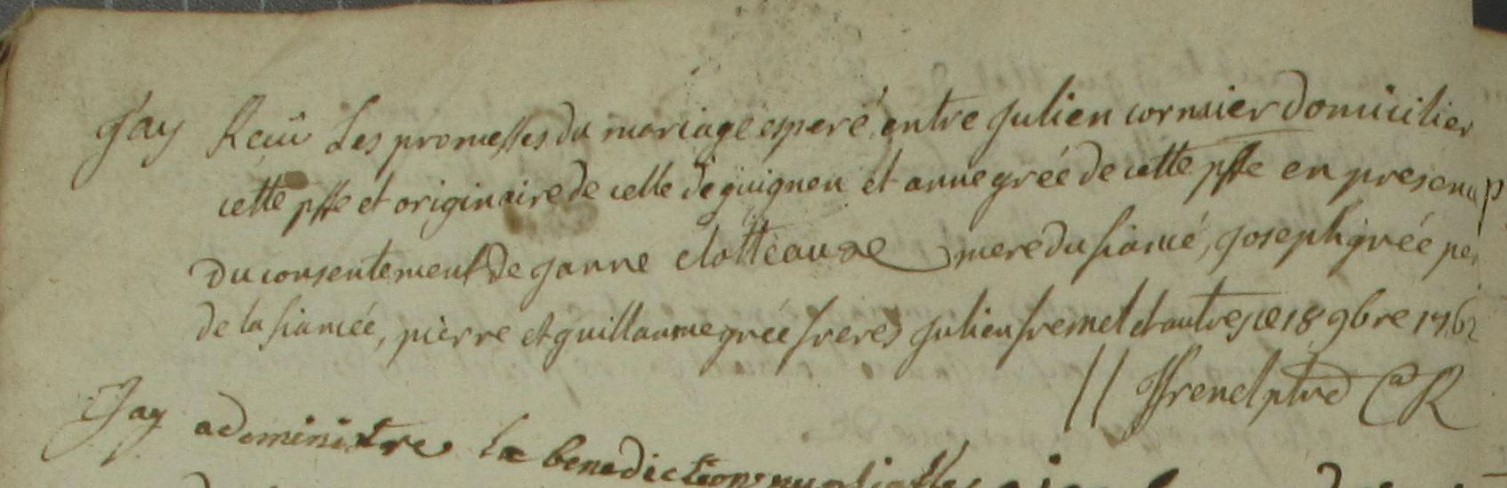 Jay Reçu Les promesses du mariage esperé entre Julien cornuier domicilier
cette psse et originaire de celle de guignen et anne grée de cette psse en presence
du consentement de janne clotteaux mere du fiancé, joseph grée per
de la fiancée, pierre et guillaume grée freres julien fremel et autres ce 18 9bre 1762
ptre CR
Jay administre la benediction nuptialle